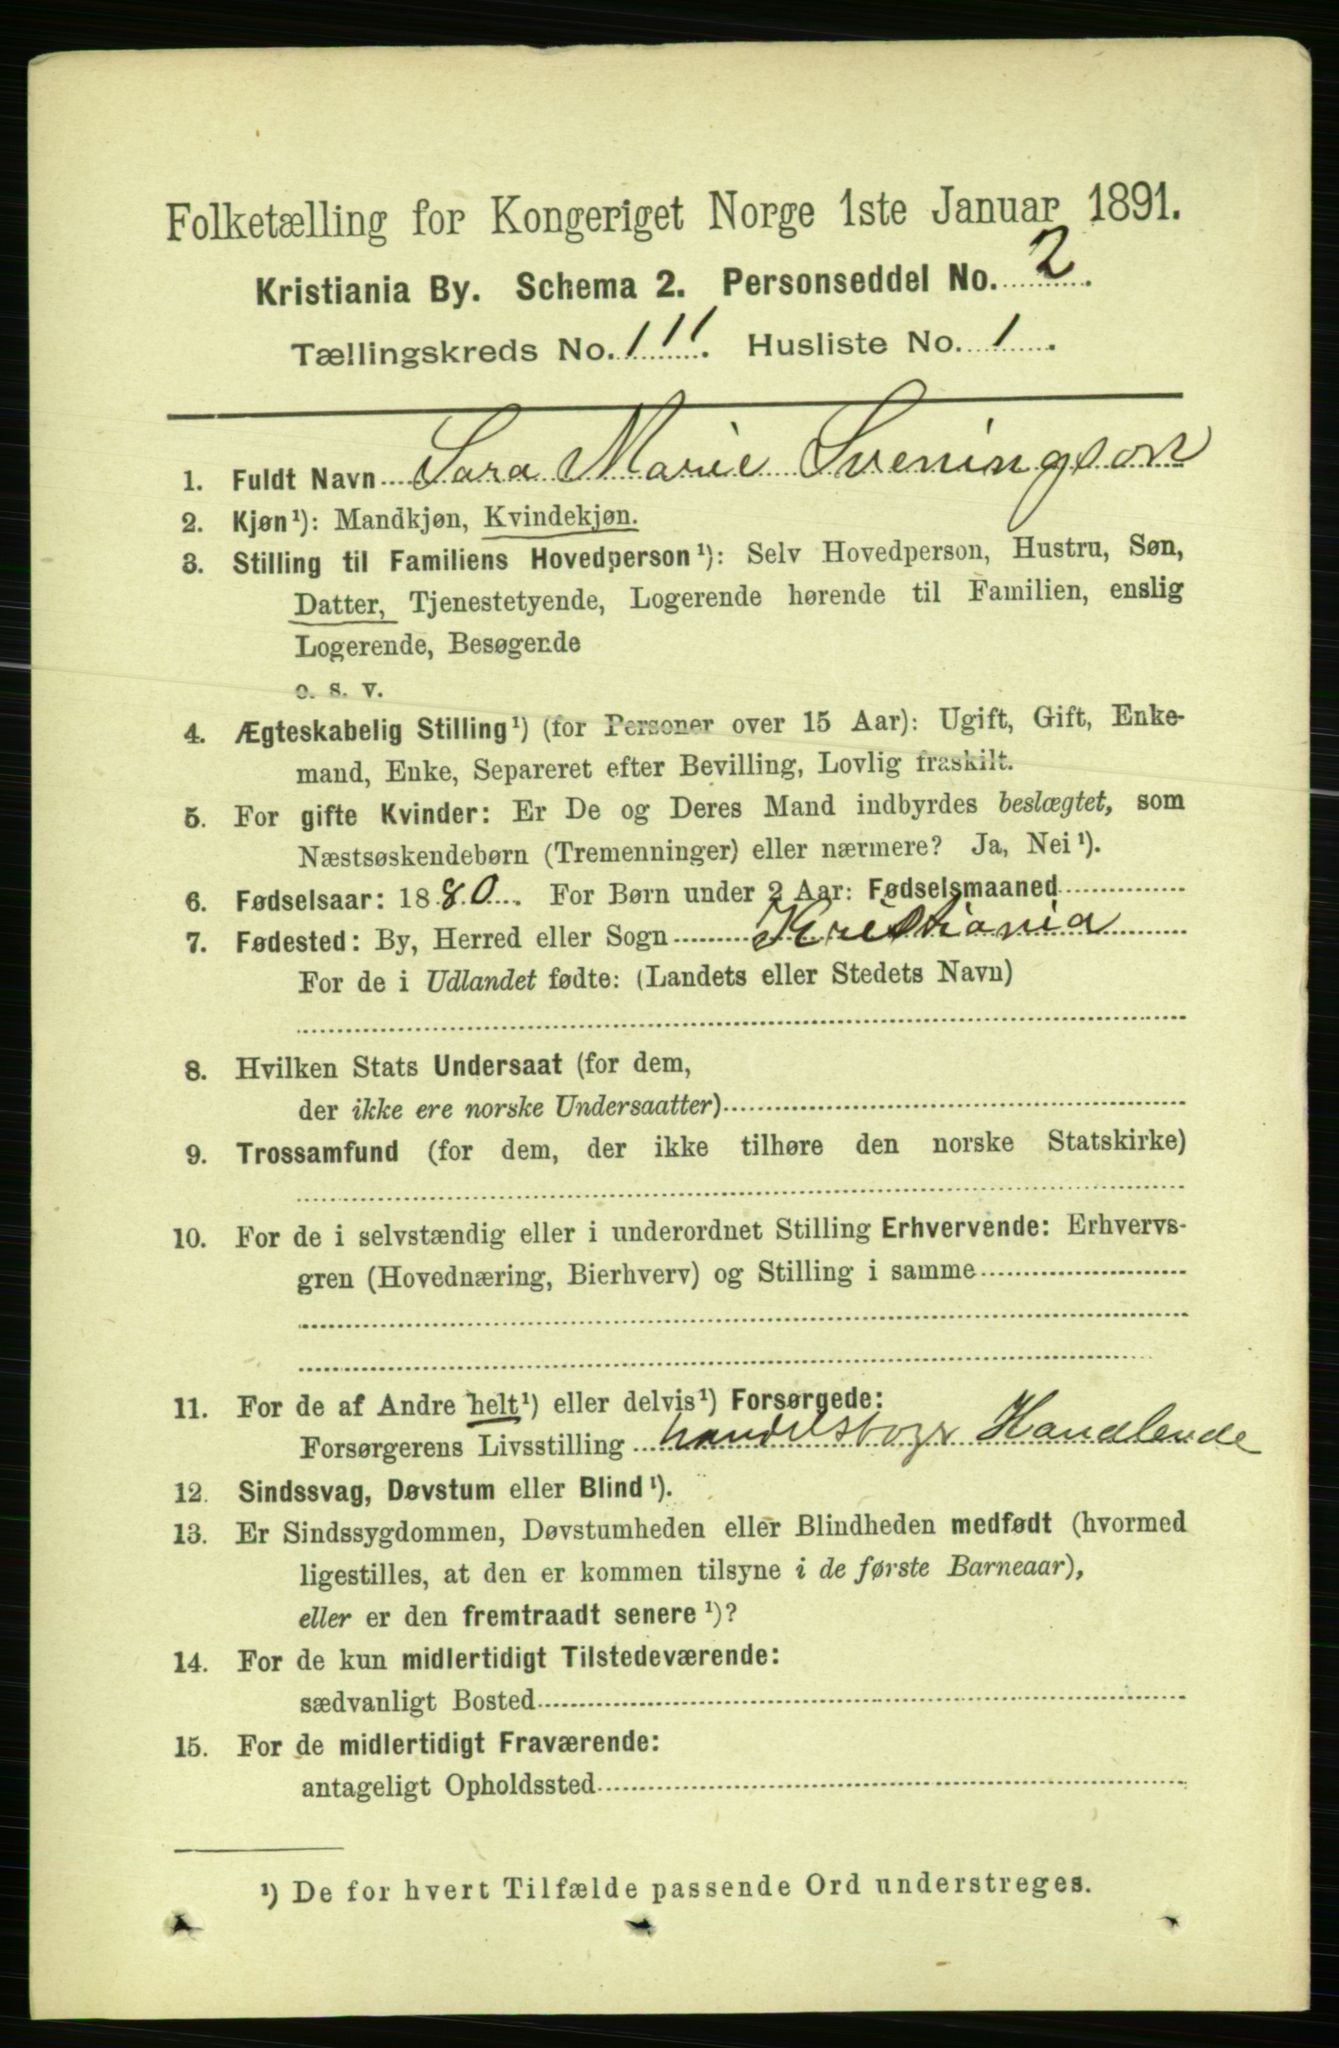 Folketælling for Kongeriget Norge 1ste Januar 1891.
Kristiania By. Schema 2. Personseddel No. 2.
Tællingskreds No. 111. Husliste No. 1.
1. Fuldt Navn Sara Marie Sveningson
2. Kjøn¹): Mandkjøn, Kvindekjøn.
3. Stilling til Familiens Hovedperson¹): Selv Hovedperson, Hustru, Søn,
Datter, Tjenestetyende, Logerende hørende til Familien, enslig
Logerende, Besøgende
o. s. v.
4. Ægteskabelig Stilling¹) (for Personer over 15 Aar): Ugift, Gift, Enke-
mand, Enke, Separeret efter Bevilling, Lovlig fraskilt.
5. For gifte Kvinder: Er De og Deres Mand indbyrdes beslægtet, som
Næstsøskendebørn (Tremenninger) eller nærmere? Ja, Nei¹).
6. Fødselsaar: 1880. For Børn under 2 Aar: Fødselsmaaned
7. Fødested: By, Herred eller Sogn Kristiania
For de i Udlandet fødte: (Landets eller Stedets Navn)
8. Hvilken Stats Undersaat (for dem,
der ikke ere norske Undersaatter)
9. Trossamfund (for dem, der ikke tilhøre den norske Statskirke)
10. For de i selvstændig eller i underordnet Stilling Erhvervende: Erhvervs-
gren (Hovednæring, Bierhverv) og Stilling i samme
11. For de af Andre helt¹) eller delvis¹) Forsørgede:
Forsørgerens Livsstilling Handlende
12. Sindssvag, Døvstum eller Blind¹).
13. Er Sindssygdommen, Døvstumheden eller Blindheden medfødt (hvormed
ligestilles, at den er kommen tilsyne i de første Barneaar),
eller er den fremtraadt senere¹)?
14. For de kun midlertidigt Tilstedeværende:
sædvanligt Bosted
15. For de midlertidigt Fraværende:
antageligt Opholdssted
¹) De for hvert Tilfælde passende Ord understreges.